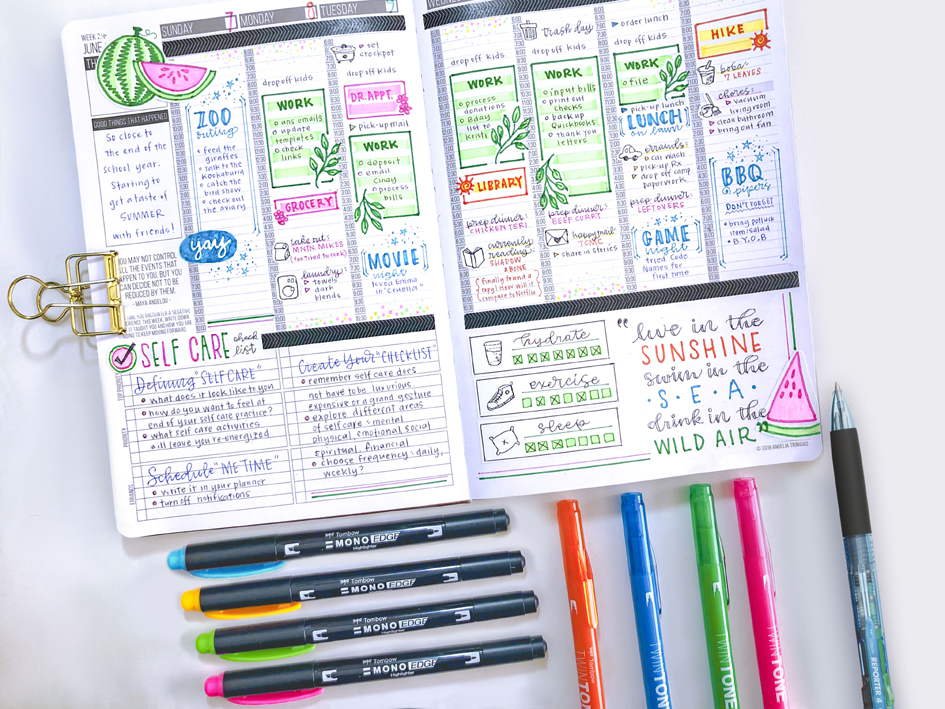 WEEK 24
JUNE
SUNDAY
7
MONDAY
8
TUESDAY
GOOD THINGS THAT HAPPENED
So close to
the end of the
school year.
Starting to
get a taste of
SUMMER
with friends!
ZOO
outing!
feed the
giraffes
talk to the
zookeepers
catch the
bird show
check out
the aviary
yay
YOU MAY NOT CONTROL
ALL THE EVENTS THAT
HAPPEN TO YOU, BUT YOU
CAN DECIDE NOT TO BE
REDUCED BY THEM.
- MAYA ANGELOU -
drop off kids
WORK
ans emails
update
templates
check
links
GROCERY
take out:
MNTN. MIKES
(too tired to cook)
laundry:
towels
dark
blends
set
crockpot
drop off kids
DR. APPT.
Pick-up mail
WORK
deposit
email
Cindy
process
bills
MOVIE
night
loved Emma
in "Cruella"
drop off kids
WORK
process
donations
Bday
list to
Kristi
LIBRARY
prep dinner:
CHICKEN TERI
currently
reading:
SHADOW
& BONE
(finally found a
copy! How will it
compare to Netflix)
trash day
drop off kids
WORK
input bills
print out
checks
back up
Quickbooks
thank you
letters
prep dinner:
BEEF CURRY
happy mail:
TCMC
share in Stories
order lunch
drop off kids
WORK
file
pick-up lunch
LUNCH
on lawn
errands:
car wash
pick-up Rx
drop off camp
paperwork
prep dinner:
LEFTOVERS
GAME
night
tried Code
Names for
first time
HIKE
boba:
7 LEAVES
chores:
vacuum
living room
clean bathroom
bring out fan
BBQ
w/ pipers
DON'T FORGET
bring potluck
item: salad
B.Y.O.B
SELF CARE check
list
Defining "SELF CARE"
what does it look like to you
how do you want to feel at
end of your self care practice?
what self care activities
will leave you re-energized
Schedule "ME TIME"
write it in your planner
turn off notifications
PRIORITY
ERRANDS
Create Your "CHECKLIST"
remember self care does
not have to be luxurious
expensive or a grand gesture
explore different areas
of self care: mental
physical, emotional, social
spiritual, financial
choose frequency: daily,
weekly?
hydrate
exercise
sleep
"live in the
SUNSHINE
swim in the
·S·E·A·
drink in the
WILD AIR"
© 2018 ANGELIA TRINIDAD
Tombow
MONO EDGE
Highlighter
Tombow
MONO EDGE
Highlighter
Tombow
MONO EDGE
Highlighter
Tombow
MONO EDGE
Highlighter
TWINTONE
TWINTONE
TWINTONE
TWINTONE
REPORTER 4